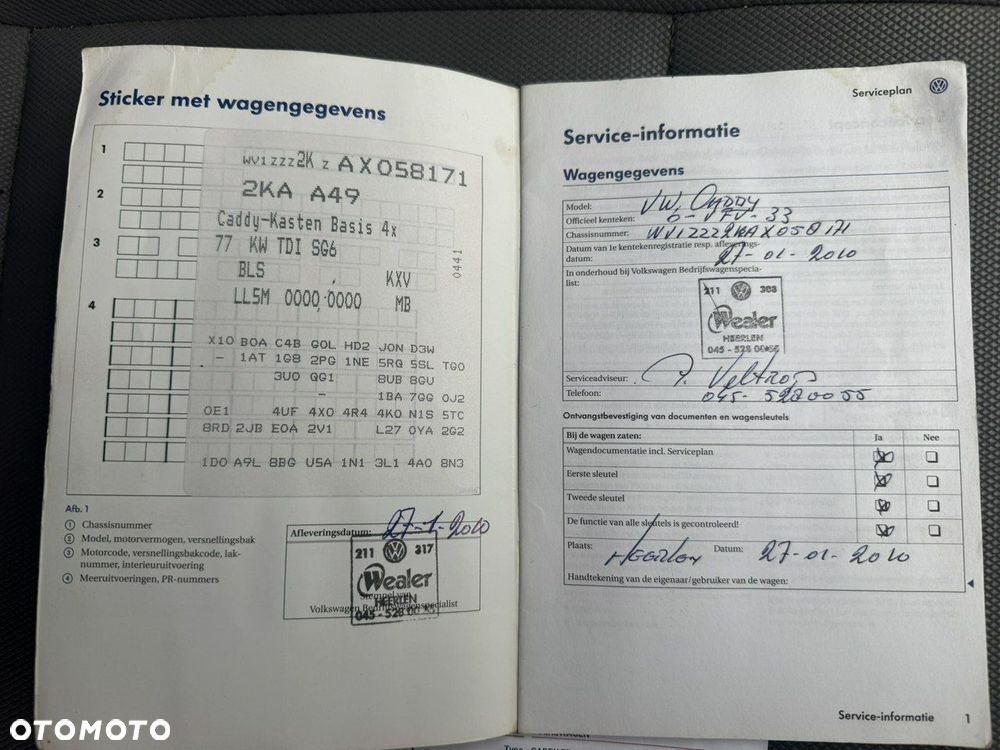 Sticker met wagengegevens
1
2
3
4
WV1ZZZ2K Z AX058171
2KA A49
Caddy-Kasten Basis 4x
77 KW TDI SG6
BLS KXV
LL5M 0000,0000 MB
0441
X10 B0A C4B G0L HD2 J0N D3W
- 1AT 1G8 2PG 1NE 5RQ 5SL TG0
3U0 QG1 8UB 8GU
- 1BA 7GG 0J2
0E1 4UF 4X0 4R4 4K0 N1S 5TC
8RD 2JB E0A 2V1 L27 0YA 2G2
1D0 A9L 8BG U5A 1N1 3L1 4A0 8N3
Afb. 1
1 Chassisnummer
2 Model, motorvermogen, versnellingsbak
3 Motorcode, versnellingsbakcode, lak-
nummer, interieuruitvoering
4 Meeruitvoeringen, PR-nummers
Afleveringsdatum: 27-1-2010
211 317
Wealer
HEERLEN
045-528 00 55
Stempel van
Volkswagen Bedrijfswagenspecialist
Serviceplan
Service-informatie
Wagengegevens
Model: VW Caddy
Officieel kenteken: 6-VFV-33
Chassisnummer: WV1ZZZ2KAX058171
Datum van 1e kentekenregistratie resp. afleverings-
datum: 27-01-2010
In onderhoud bij Volkswagen Bedrijfswagenspecia-
list:
211 303
Wealer
HEERLEN
045-528 00 55
Serviceadviseur:
Telefoon: 045-5280055
Ontvangstbevestiging van documenten en wagensleutels
Bij de wagen zaten: Ja Nee
Wagendocumentatie incl. Serviceplan
Eerste sleutel
Tweede sleutel
De functie van alle sleutels is gecontroleerd!
Plaats: Heerlen Datum: 27-01-2010
Handtekening van de eigenaar/gebruiker van de wagen:
Service-informatie 1
OTOMOTO